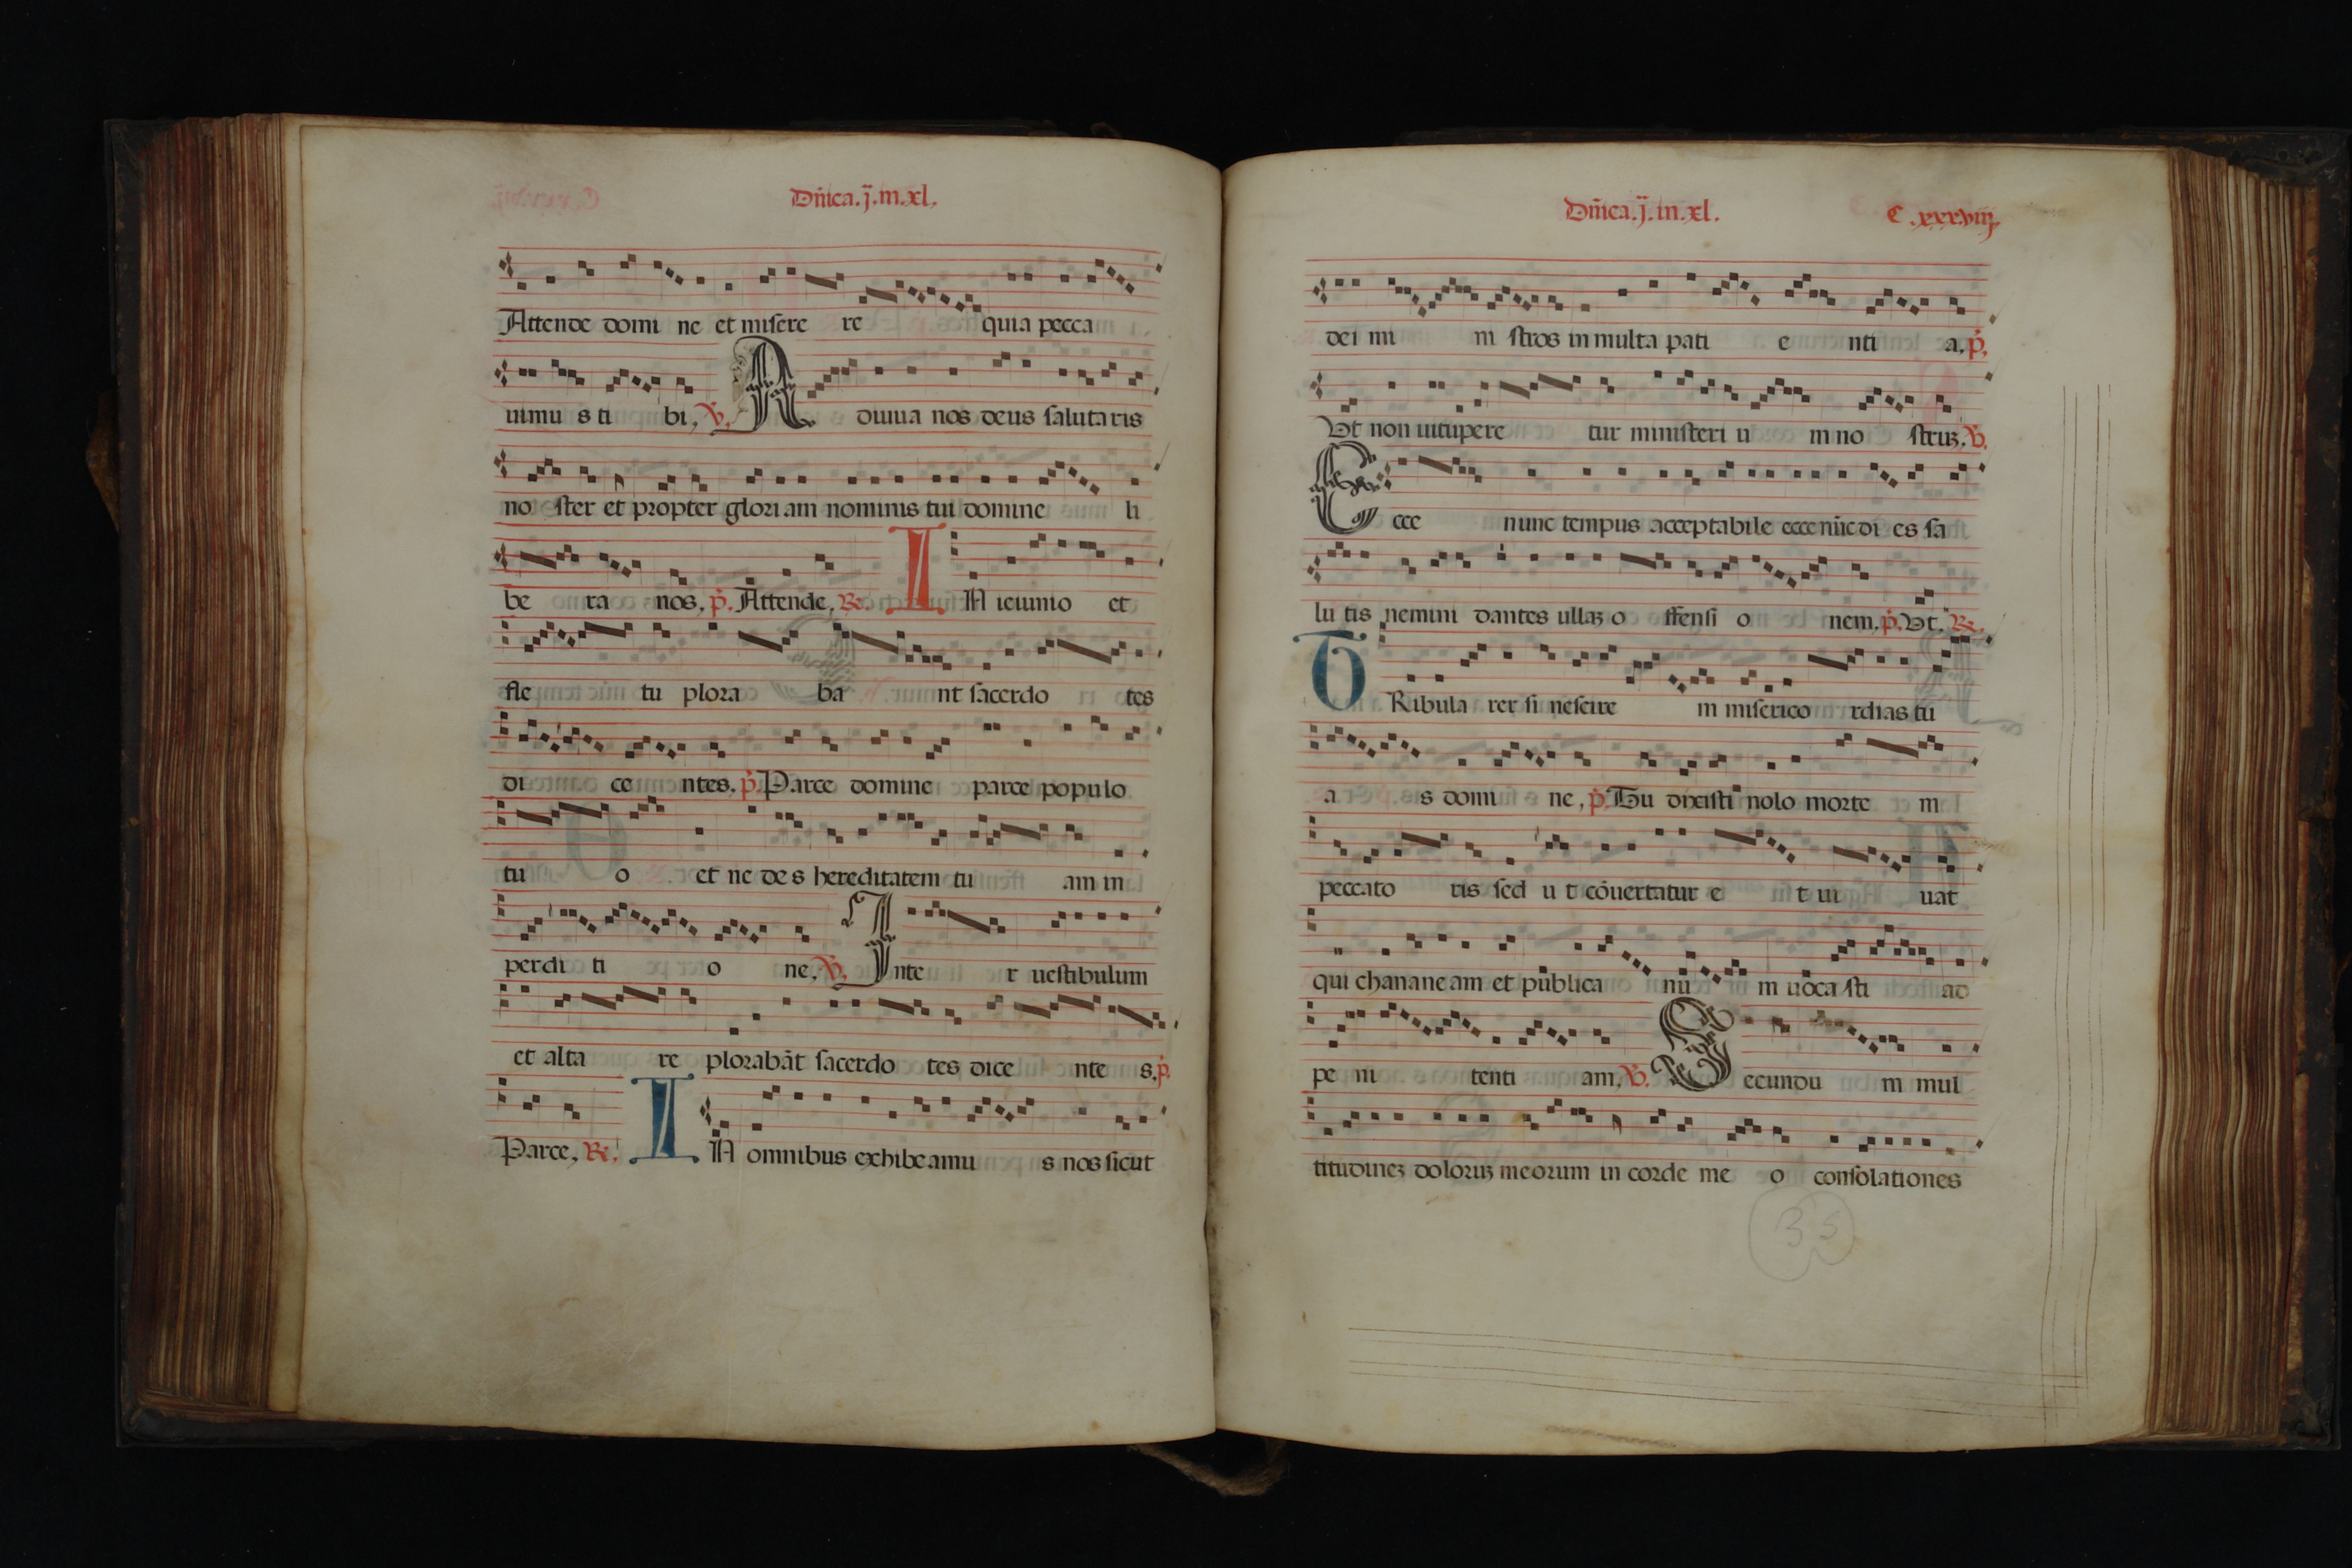 Dñica.j.in.xl.
Attende domi ne et misere re quia pecca
uimu s ti bi, V. A diuua nos deus salutaris
no ster et propter gloriam nominis tui domine li
be ra nos, p. Attende, R. I N ieiunio et
fle tu plora ba nt sacerdo tes
di ce ntes. p. Parce domine parce populo
tu o et ne des hereditatem tu am in
perdi ti o ne, V. Inte r uestibulum
et alta re plorabāt sacerdo tes dice nte s, p.
Parce, R. I N omnibus exhibeamu s nos sicut
Dñica.j.in.xl. C.xxxviij
dei mi ni stros in multa pati e nti a, p.
Vt non uitupere tur ministeri u m no struz, V.
E cce nunc tempus acceptabile ecce nūc di es sa
lu tis nemini dantes ullaz o ffensi o nem, p. Vt. R.
T Ribula rer si nescire m miserico rdias tu
a s domi ne, p. Tu dixisti nolo morte m
peccato ris sed u t cōuertatur e t ui uat
qui chananeam et publica nu m uoca sti ad
pe ni tenti am, V. S ecundu m mul
titudinez doloruz meorum in corde me o consolationes
35